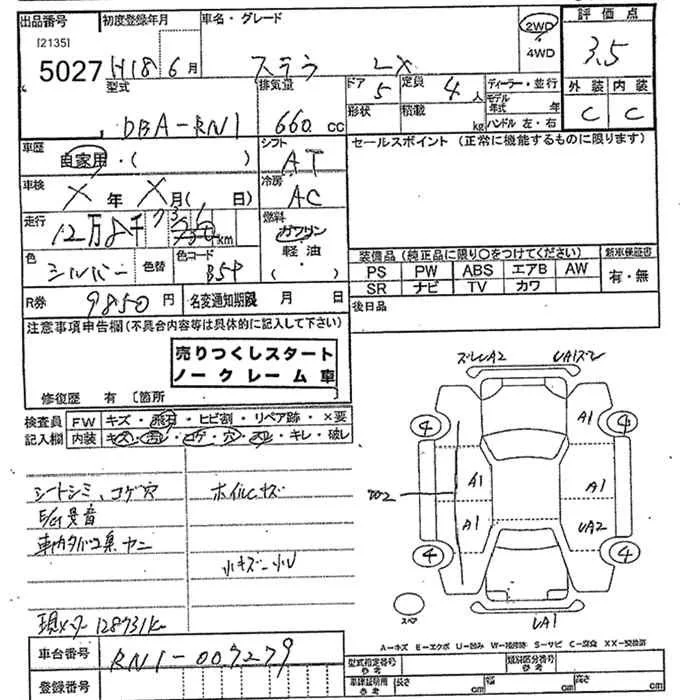 出品番号 初度登録年月 車名・グレード 2WD 評価点
[2135] 4WD 3.5
5027 H18 6月 ステラ LX 外装 内装
型式 排気量 ドア 5 定員 4人 ディーラー・並行 C C
DBA-RN1 660cc 形状 積載 kg モデル年式 年
ハンドル 左・右
車歴 自家用・( ) シフト AT セールスポイント (正常に機能するものに限ります)
車検 X年 X月( 日) 冷房 AC
走行 12万8千731km 燃料 ガソリン
軽油
( )
色 シルバー 色替 色コード
装備品 (純正品に限り○をつけてください) 新車保証書
PS PW ABS エアB AW 有・無
SR ナビ TV カワ
R券 9850円 名変通知期限 月 日 後日品
注意事項申告欄 (不具合内容等は具体的に記入して下さい)
売りつくしスタート
ノークレーム車
修復歴 有 [箇所
検査員記入欄 FW キズ・飛石・ヒビ割・リペア跡・×要
内装 キズ・汚レ・コゲ・穴・スレ・キレ・破レ
シートシミ、コゲ穴 ホイルキズ
E/G異音
車内タバコ臭 ヤニ
小キズ 小U
現メーター 128731km
A1 UA1 A1 A1 A1 UA2
4 4 4 4
スペア UA1
A-キズ E-エクボ U-凹み W-補修跡 S-サビ C-腐食 XX-交換済
車台番号 RN1-007279
登録番号
型式指定番号 参考 類別区分番号 参考
車庫証明用 参考 長さ cm 幅 cm 高さ cm